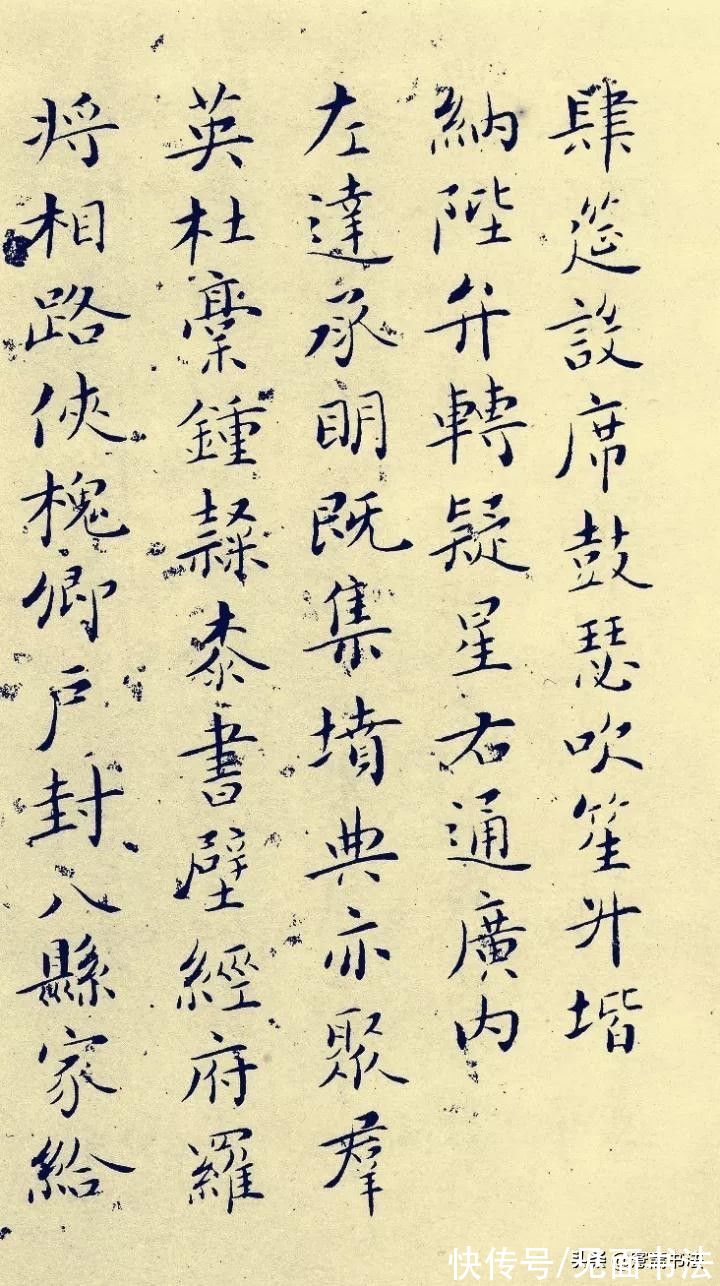 肆筵設席鼓瑟吹笙升堦
納陛弁轉疑星右通廣内
左達承明既集墳典亦聚羣
英杜稾鍾隸桼書壁經府羅
将相路俠槐卿戶封八縣家給
快传号/见面书法
头条